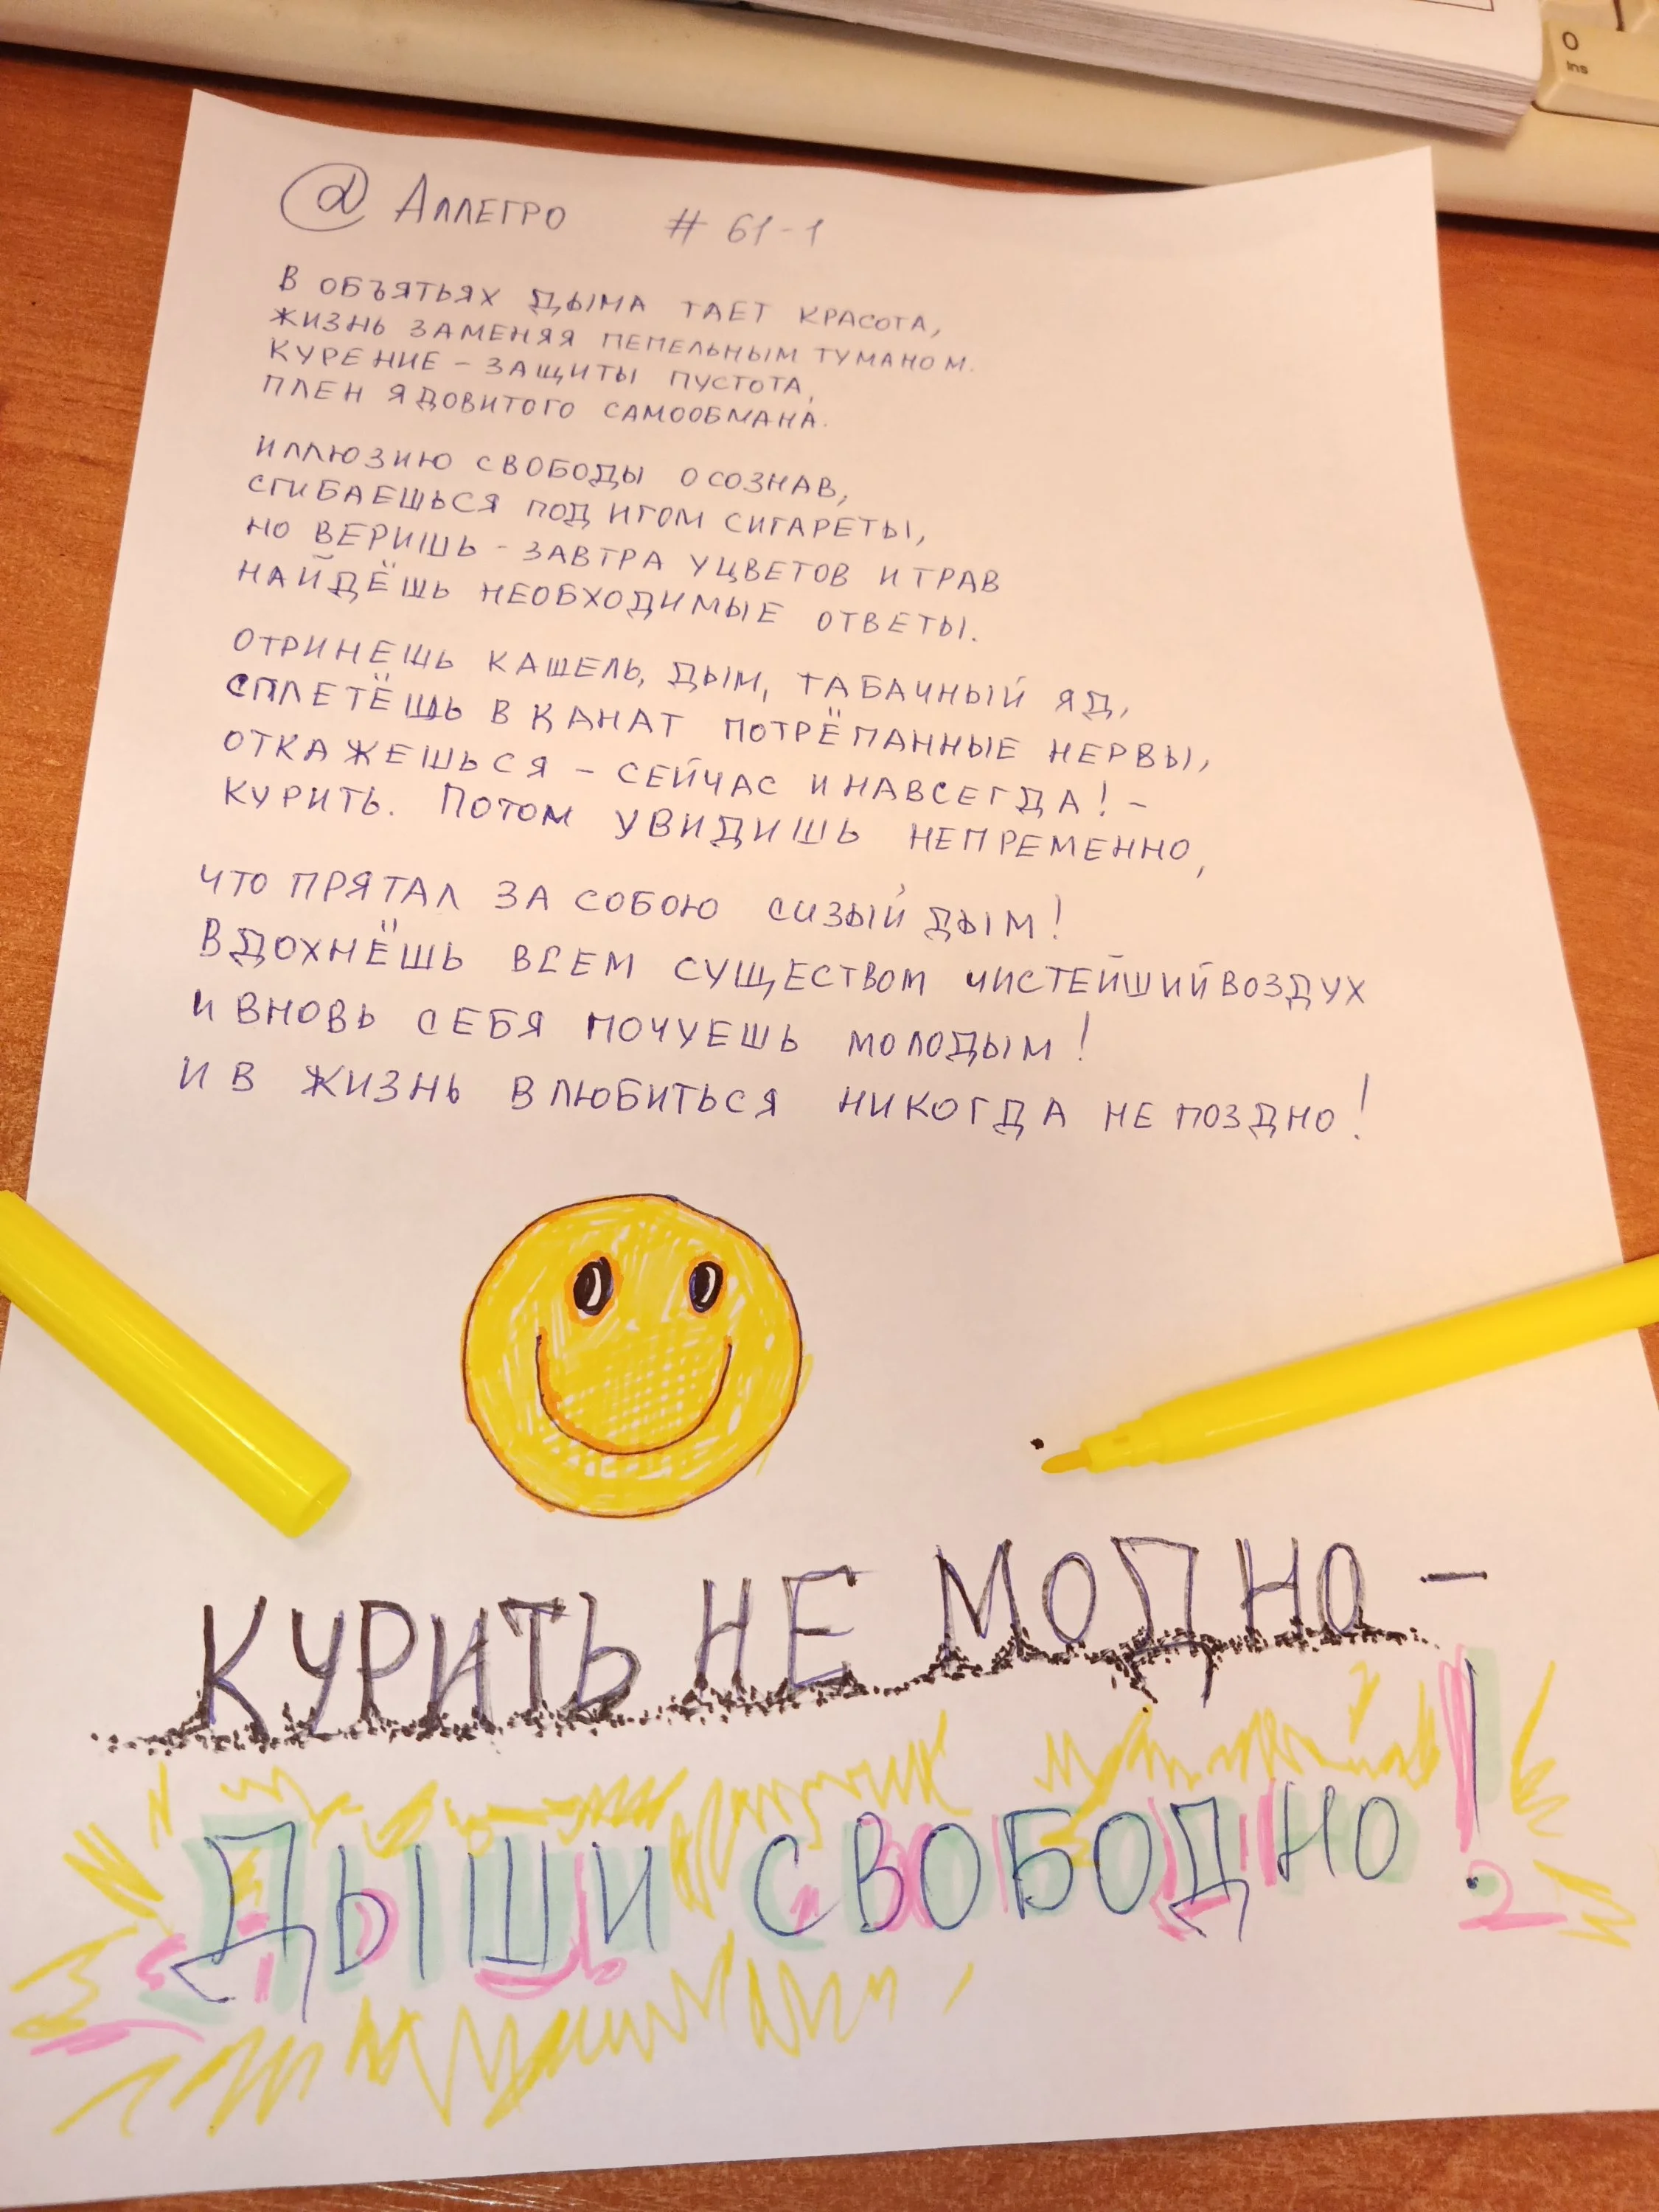 @ Аллегро # 61-1
В ОБЪЯТЬЯХ ДЫМА ТАЕТ КРАСОТА,
ЖИЗНЬ ЗАМЕНЯЯ ПЕПЕЛЬНЫМ ТУМАНОМ.
КУРЕНИЕ – ЗАЩИТЫ ПУСТОТА,
ПЛЕН ЯДОВИТОГО САМООБМАНА.
ИЛЛЮЗИЮ СВОБОДЫ ОСОЗНАВ,
СГИБАЕШЬСЯ ПОД ИГОМ СИГАРЕТЫ,
НО ВЕРИШЬ - ЗАВТРА У ЦВЕТОВ И ТРАВ
НАЙДЁШЬ НЕОБХОДИМЫЕ ОТВЕТЫ.
ОТРИНЕШЬ КАШЕЛЬ, ДЫМ, ТАБАЧНЫЙ ЯД,
СПЛЕТЁШЬ В КАНАТ ПОТРЁПАННЫЕ НЕРВЫ,
ОТКАЖЕШЬСЯ – СЕЙЧАС И НАВСЕГДА! –
КУРИТЬ. ПОТОМ УВИДИШЬ НЕПРЕМЕННО,
ЧТО ПРЯТАЛ ЗА СОБОЮ СИЗЫЙ ДЫМ!
ВДОХНЁШЬ ВСЕМ СУЩЕСТВОМ ЧИСТЕЙШИЙ ВОЗДУХ
И ВНОВЬ СЕБЯ ПОЧУЕШЬ МОЛОДЫМ!
И В ЖИЗНЬ ВЛЮБИТЬСЯ НИКОГДА НЕ ПОЗДНО!
КУРИТЬ НЕ МОДНО –
ДЫШИ СВОБОДНО!
0
Ins